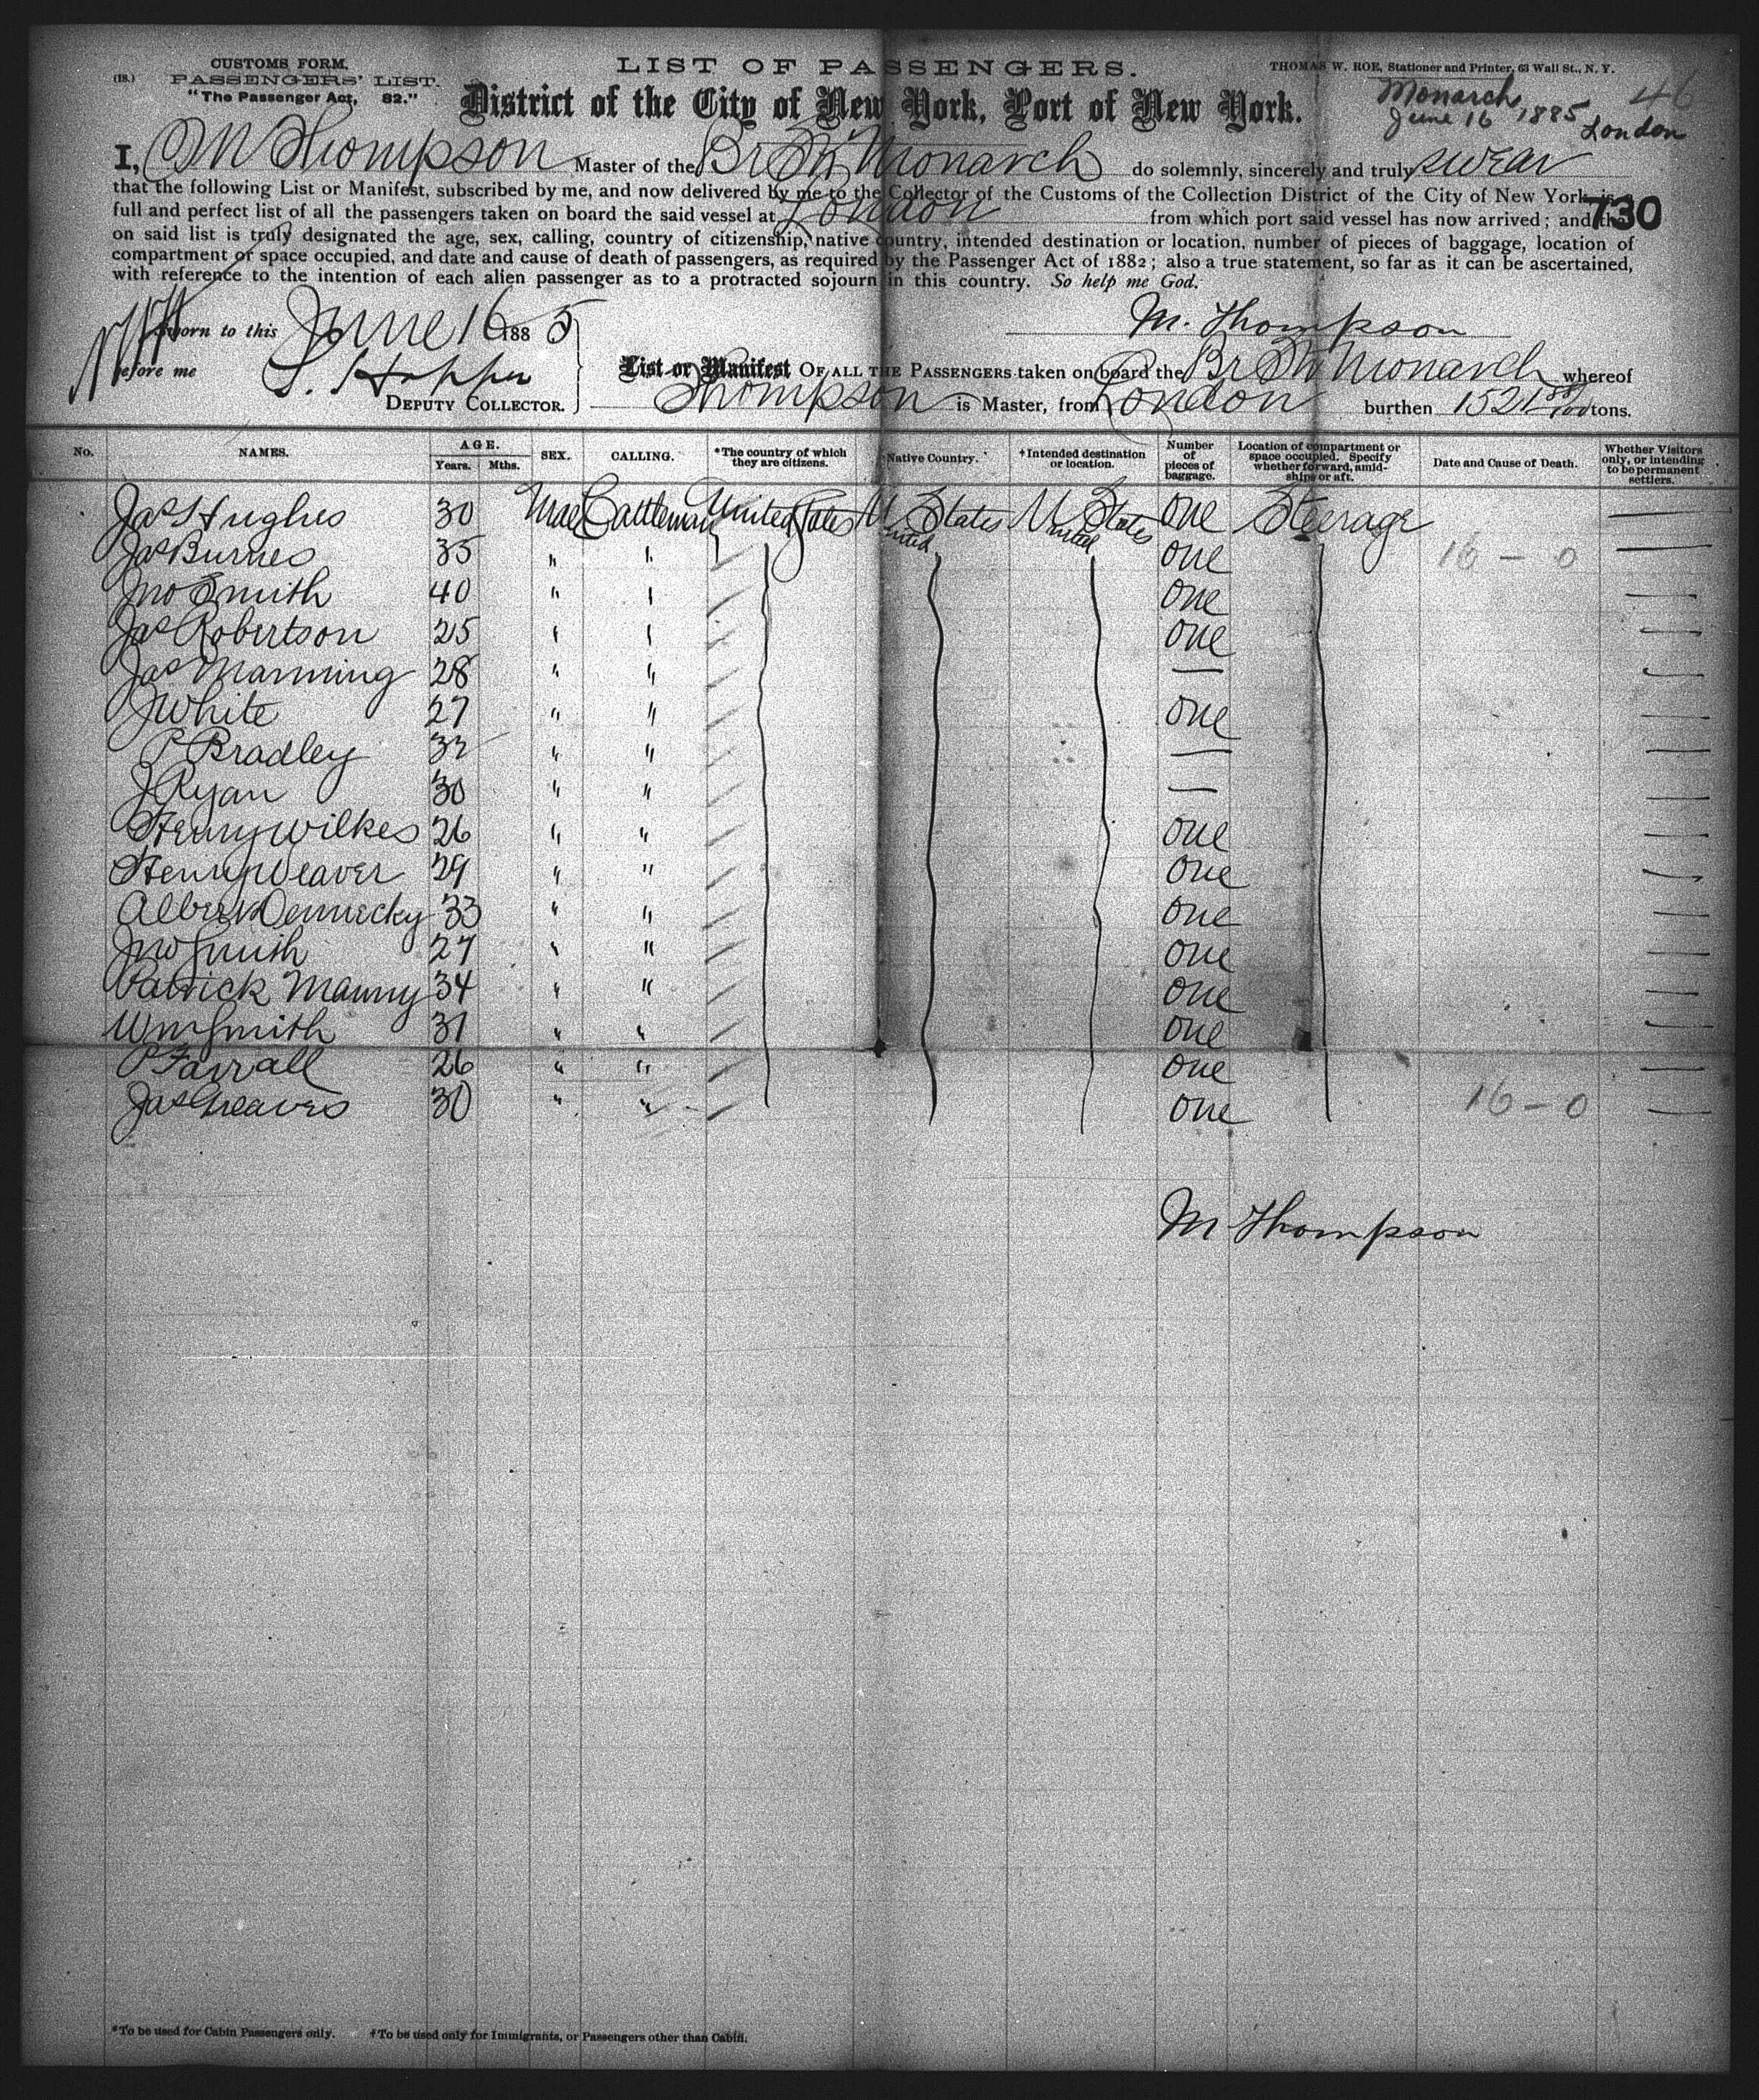 CUSTOMS FORM.
(18.) PASSENGERS' LIST.
"The Passenger Act, 82."
LIST OF PASSENGERS.
THOMAS W. ROE, Stationer and Printer, 63 Wall St., N. Y.
District of the City of New York, Port of New York.
Monarch 46
June 16 1885
London
I, M Thompson Master of the Br Str Monarch do solemnly, sincerely and truly swear
that the following List or Manifest, subscribed by me, and now delivered by me to the Collector of the Customs of the Collection District of the City of New York is
730
full and perfect list of all the passengers taken on board the said vessel at London from which port said vessel has now arrived; and
on said list is truly designated the age, sex, calling, country of citizenship, native country, intended destination or location, number of pieces of baggage, location of
compartment or space occupied, and date and cause of death of passengers, as required by the Passenger Act of 1882; also a true statement, so far as it can be ascertained,
with reference to the intention of each alien passenger as to a protracted sojourn in this country. So help me God.
Sworn to this June 16 1885
M. Thompson
before me S. Hopper
DEPUTY COLLECTOR.
List or Manifest OF ALL THE PASSENGERS taken on board the Br Str Monarch whereof
Thompson is Master, from London burthen 1521 /100 tons.
No. NAMES. AGE. Years. Mths. SEX. CALLING. *The country of which they are citizens. Native Country. †Intended destination or location. Number of pieces of baggage. Location of compartment or space occupied. Specify whether forward, amidships or aft. Date and Cause of Death. Whether Visitors only, or intending to be permanent settlers.
Jas Hughes 30 Male Cattleman United States United States United States One Steerage —
Jas Burnes 35 " " One 16 - 0 —
Jno Smith 40 " " One —
Jas Robertson 25 " " One —
Jas Manning 28 " " — —
J White 27 " " One —
P Bradley 32 " " — —
J Ryan 30 " " — —
Henry Wilkes 26 " " One —
Henry Weaver 29 " " One —
Albert Dennecky 33 " " One —
Jno Smith 27 " " One —
Patrick Manny 34 " " One —
Wm Smith 31 " " One —
P Farrall 26 " " One —
Jas Greaves 30 " " One 16 - 0 —
M Thompson
*To be used for Cabin Passengers only. †To be used only for Immigrants, or Passengers other than Cabin.